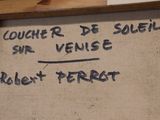 COUCHER DE SOLEIL
SUR VENISE
Robert PERROT